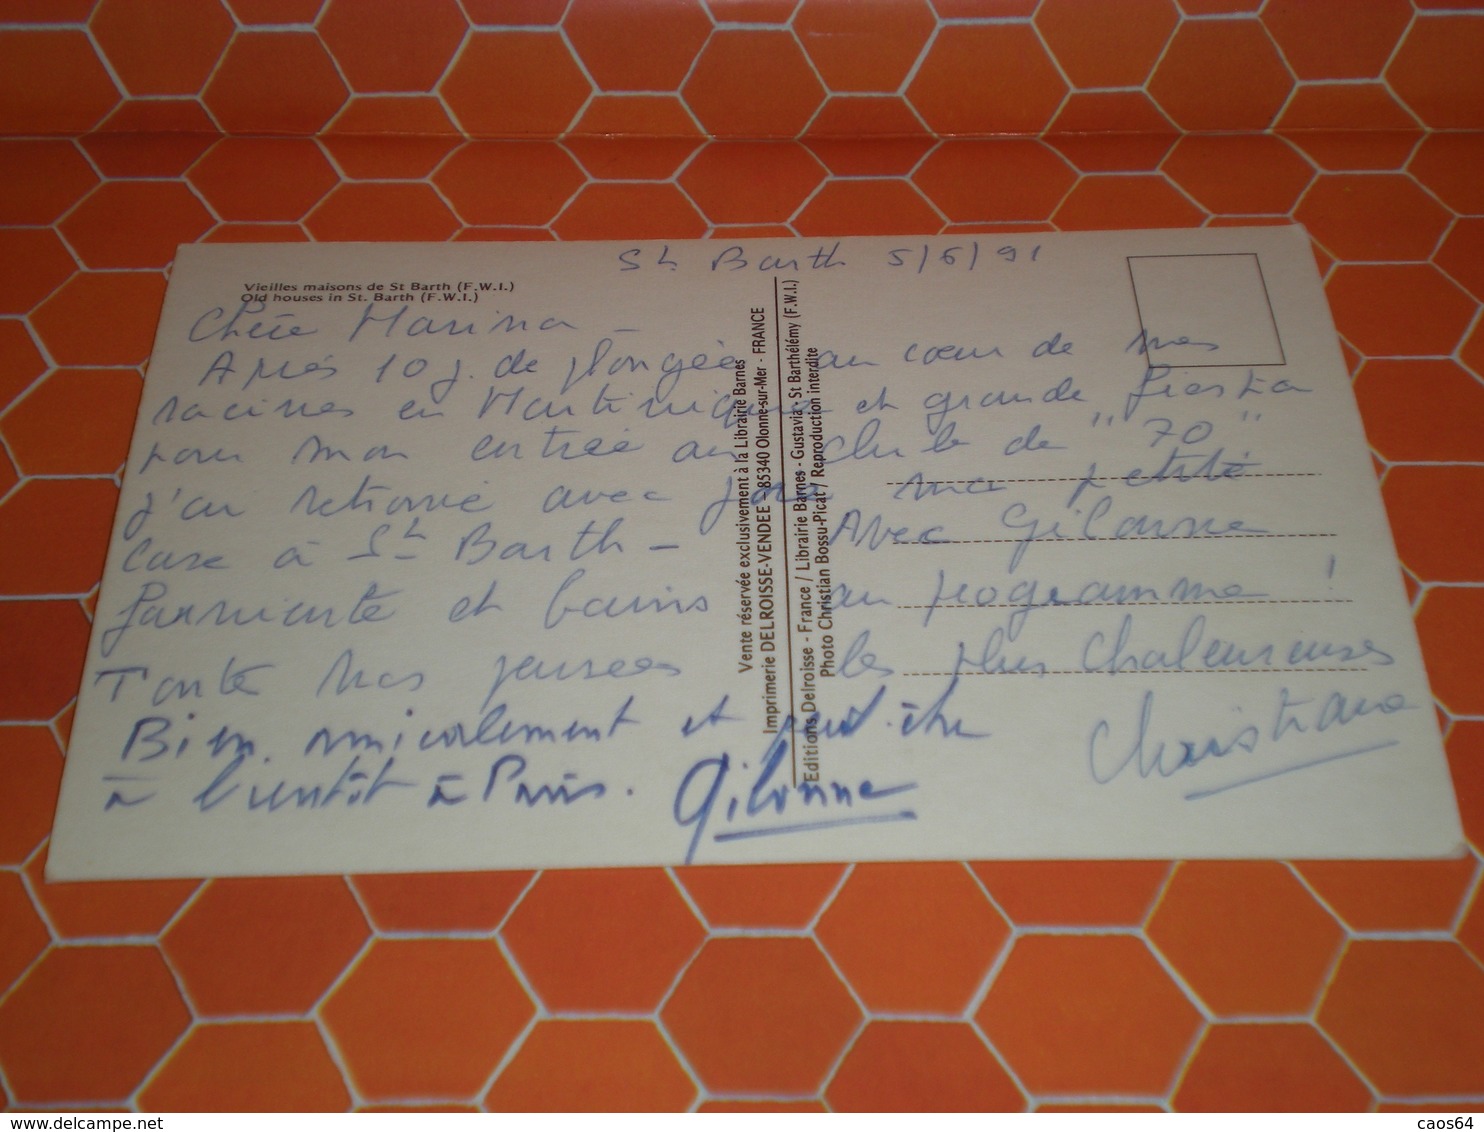 St Barth 5/6/91
Vieilles maisons de St Barth (F.W.I.)
Old houses in St. Barth (F.W.I.)
Chère Marina -
Après 10 j. de plongée au cœur de mes
racines en Martinique et grande fiesta
pour mon entrée au club de "70"
j'ai retrouvé avec joie ma petite
case à St Barth - Avec Gilonne
farniente et bains au programme !
Toute mes pensées les plus chaleureuses
Christiane
Bien amicalement et peut-être
à bientôt à Paris. Gilonne
Vente réservée exclusivement à la Librairie Barnes
Imprimerie DELROISSE-VENDEE - 85340 Olonne-sur-Mer - FRANCE
Editions Delroisse - France / Librairie Barnes - Gustavia - St Barthélémy (F.W.I.)
Photo Christian Bossu-Picat / Reproduction interdite
delcampe.net
caos64